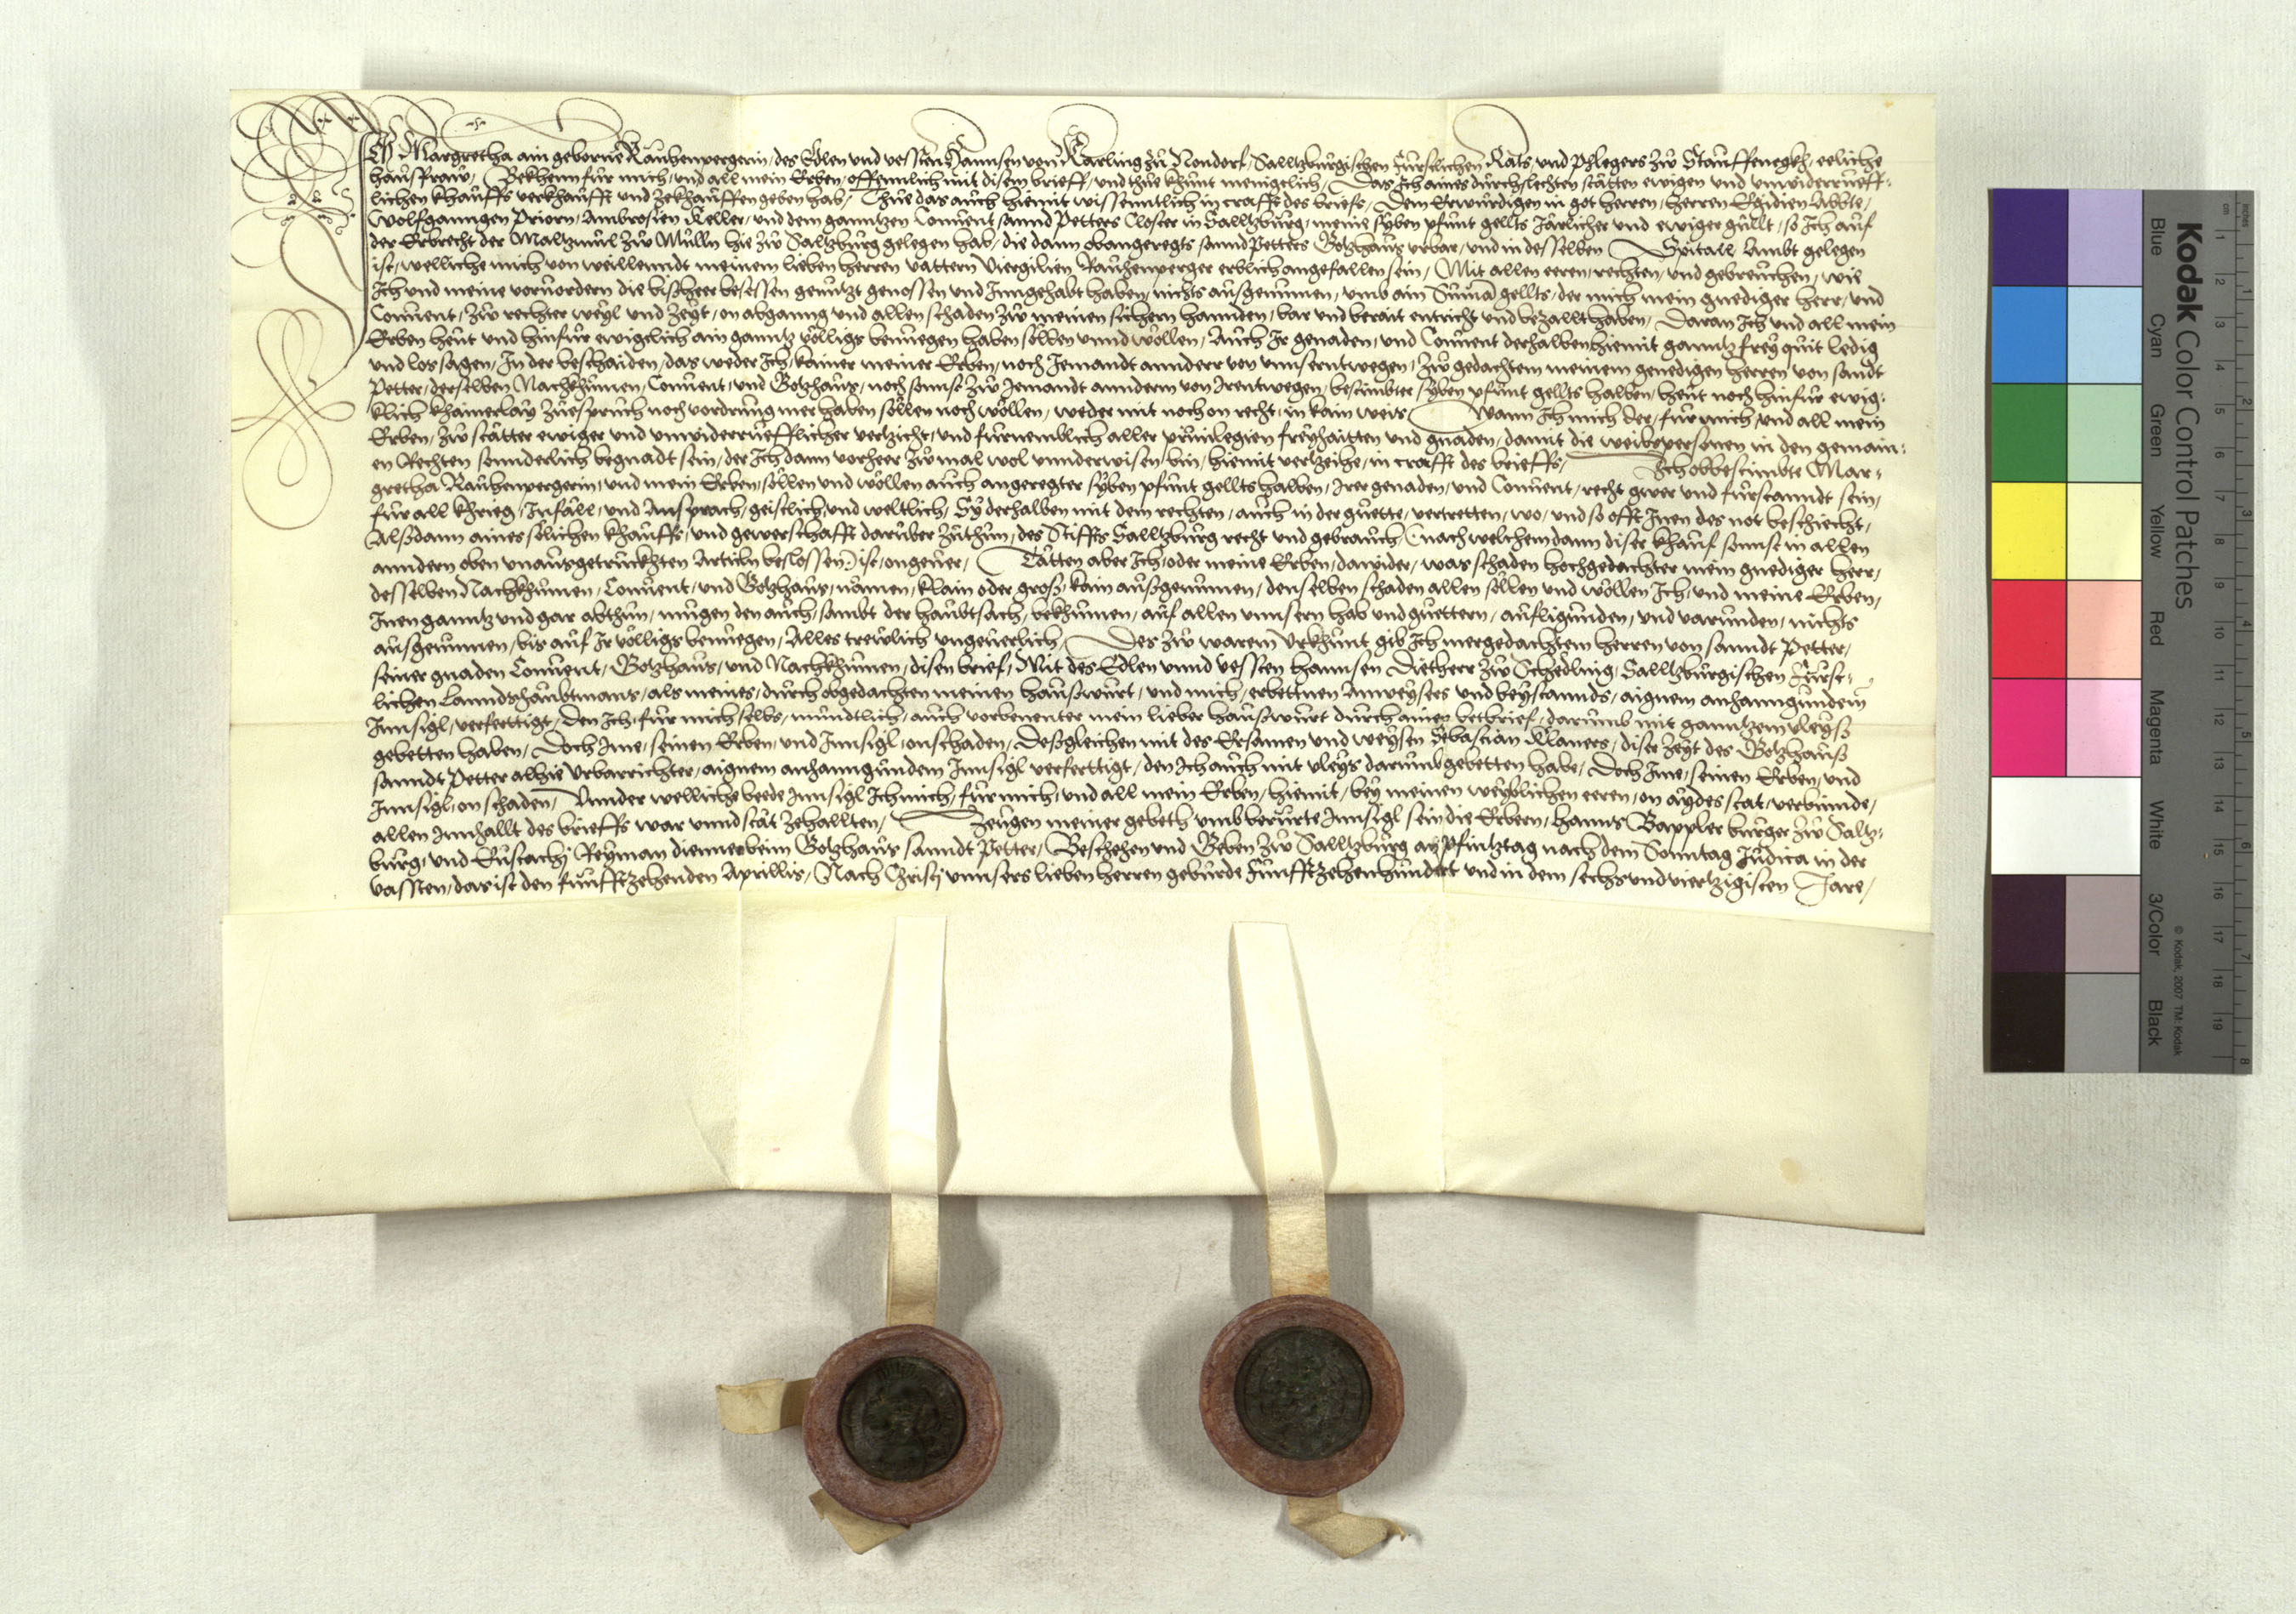 Ich Margretha ain geborne Rauhenpergerin, des Edlen und vessten Hannsen von Karling zu Nondorf, Salltzburgischen Furstlichen Rats, und Phlegers zw Stauffenegkh, eeliche
hausfraw, Bekhenn fur mich, und all mein Erben, offennlich mit disem brieff, und thue khunt menigelich, Das Ich aines durchslechten stätten ewigen und unwiderrueff-
lichen khauffs verkhaufft und zekhauffen geben hab, Thue das auch hiemit wissenntlich in crafft des briefs, Dem Erwurdigen in got herren, herren Egidien Abbte,
Wolfganngen Priorn, Ambrosien Keller, und dem ganntzen Conuent sannd Petters Closter in Salltzburg, meine syben pfunt gellts Järlicher und ewiger güllt, so Ich auf
der Erbrecht der Maltzmül zw Mülln hie zw Saltzburg gelegen hab, die dann obangeregts sannd Petters Gotzhaus urbar, und in desselben Spitall Ambt gelegen
ist, welliche mich von weillenndt meinem lieben herren vattern Viergilien Rauhenperger erblich angefallen sein, Mit allen eeren, rechten, und gebreuchen, wie
Ich und meine voruordern die bisheer besessen genutzt genossen und Inngehabt haben, nichts ausgenumen, umb ain Suma gellts, der mich mein gnediger herr, und
Conuent, zw rechter weyl und zeyt, on abganng und allen schaden zw meinen sichern hannden, bar und berait entricht und bezallt haben, Daran Ich und all mein
Erben heut und hinfur ewigclich ain ganntz völligs benuegen haben sollen unnd wöllen, Auch Ir genaden, und Conuent derhalben hiemit ganntz frey quit ledig
und los sagen, In der beschaiden, das weder Ich, kainer meiner Erben, noch Jemandt annderr von unnserntwegen, zw gedachtem meinem genedigen herren von sandt
Petter, derselben Nachkhumen, Conuent, und Gotzhaus, noch sonnst zw Jemandt annderm von Irentwegen, bestimbter syben pfunt gellts halben, heut noch hinfur ewig-
klich khainerlay zuespruch noch vordrung mer haben söllen noch wöllen, weder mit noch on recht, in kain weis, Wann Ich mich der, fur mich, und all mein
Erben, zw stätter ewiger und unwiderrueflicher verzicht, und furnemblich aller priuilegien freyhaitten und gnaden, damit die weibspersonen in den gemain-
en Rechten sonnderlich begnadt sein, der Ich dann vorheer zwmal wol unnderwisen bin, hiemit verzeihe, in crafft des brieffs, Ich obbestimbte Mar-
gretha Rauhenpergerin, und mein Erben, söllen und wöllen auch angeregter syben pfunt gellts halben, Irer genaden, und Conuent, recht gwer und furstanndt sein,
fur all khrieg, Infäll, und Ansprach, geistlich und weltlich, Sy derhalben mit dem rechten, auch in der guette, vertretten, wo, und so offt Inen des not beschiecht,
Alßdann aines solichen khauffs, und gewerschafft daruber zuthun, des Stiffts Salltzburg recht und gebrauch, (nach welchem dann diser khauf sonnst in allen
anndern oben unausgetruckhten Articln beslossen) ist, ongeuer, Tätten aber Ich, oder meine Erben, dawider, was schaden hochgedachter mein gnediger herr,
desselben Nachkhumen, Conuent, und Gotzhaus, nämen, klain oder groß, kain außgenumen, denselben schaden allen söllen und wöllen Ich, und meine Erben,
Inen ganntz und gar abthun, mügen den auch, sambt der haubtsach, bekhumen, auf allen unnsern hab und guettern, aufligunden, und varunden, nichts
ausgenumen, bis auf Ir völligs benuegen, Alles trewlich ungeuerlich, Des zw warem Urkhunt gib Ich mergedachtem herren von sanndt Petter,
seiner gnaden Conuent, Gotzhaus, und Nachkhumen, disen brief, Mit des Edlen unnd vessten hannsen Dietherr zw Schedling, Salltzburgischen Furst-
lichen Lanndshaubtmans, als meines, durch obgedachten meinen haußwirt, und mich, erbettnen Anweysers und beystannds, aignem anhanngunden
Innsigl, verferttigt, den Ich, fur mich selbs, mundtlich, auch vorbenenter mein lieber haußwirt durch ainen betbrief, darumb mit ganntzem vleyß
gebetten haben, Doch Ime, seinen Erben, und Innsigl, on schaden, Deßgleichen mit des Ersamen und weysen Sebastian Klaners, diser zeyt des Gotzhauß
sanndt Petter alhie Urbarrichter, aignem anhanngundem Innsigl verferttigt, den Ich auch mit vleys darumb gebetten habe, Doch Ime, seinen Erben, und
Innsigl, on schaden, Unnder welliche beede Innsigl Ich mich, fur mich, und all mein Erben, hiemit, bey meinen weyblichen eeren, on aydes stat, verbinnde,
allen Innhallt des brieffs war unnd stät zehallten, Zeugen meiner gebeth umb berürte Innsigl sein die Erbern, Hanns Bappler burger zw Saltz-
burg, und Eustachy Reyman diener beim Gotzhaus sanndt Petter, Beschehen und Geben zw Salltzburg an pfintztag nach dem Sonntag Judica in der
vassten, das ist den funfftzehenden Aprillis, Nach Christi unnsers lieben herren geburde Funfftzehenhundert und in dem sechsundviertzigisten Jare,
Kodak Color Control Patches
Blue Cyan Green Yellow Red Magenta White 3/Color Black
© Kodak, 2007 TM: Kodak
cm 1 2 3 4 5 6 7 8 9 10 11 12 13 14 15 16 17 18 19
inches 1 2 3 4 5 6 7 8